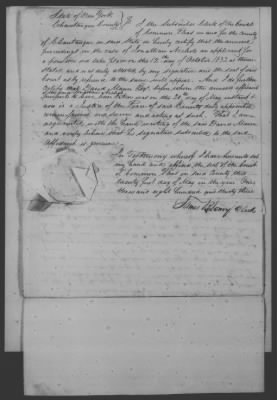 State of New York
Chautauque County } I the Subscriber Clerk of the Court
of Common Pleas in and for the county
of Chautauque and State as aforesaid certify that the annexed
proceedings in the case of Jonathan Nichols an applicant for
a pension was taken place on the 3d day of October 1832 as therein
stated and is only attested by my signature and the seal of said
Court as by reference to the same will appear. And I do further
certify that David Mann Esq. before whom the annexed affidavit
purports to have been taken was on the 20 day of May instant
was a Justice of the Peace of said County duly appointed
commissioned and sworn and acting as such. That I am
acquainted with the hand writing of the said David Mann
and verily believe that his signature subscribed to the said
affidavit is genuine.
In Testimony whereof I have hereunto set
my hand and affixed the seal of the Court
of Common Pleas in said County this
twenty first day of May in the year One
thousand eight hundred and thirty three
James Henry Clerk